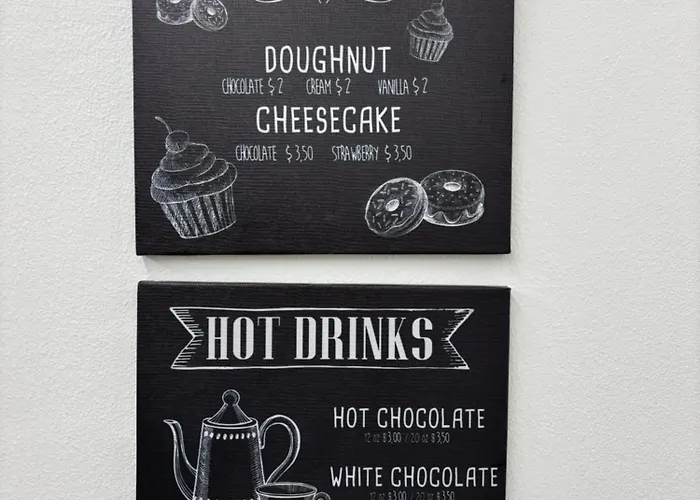 DOUGHNUT
CHOCOLATE $2 CREAM $2 VANILLA $2
CHEESECAKE
CHOCOLATE $3,50 STRAWBERRY $3,50
HOT DRINKS
HOT CHOCOLATE
12 oz $3,00 / 20 oz $3,50
WHITE CHOCOLATE
12 oz $3,00 / 20 oz $3,50